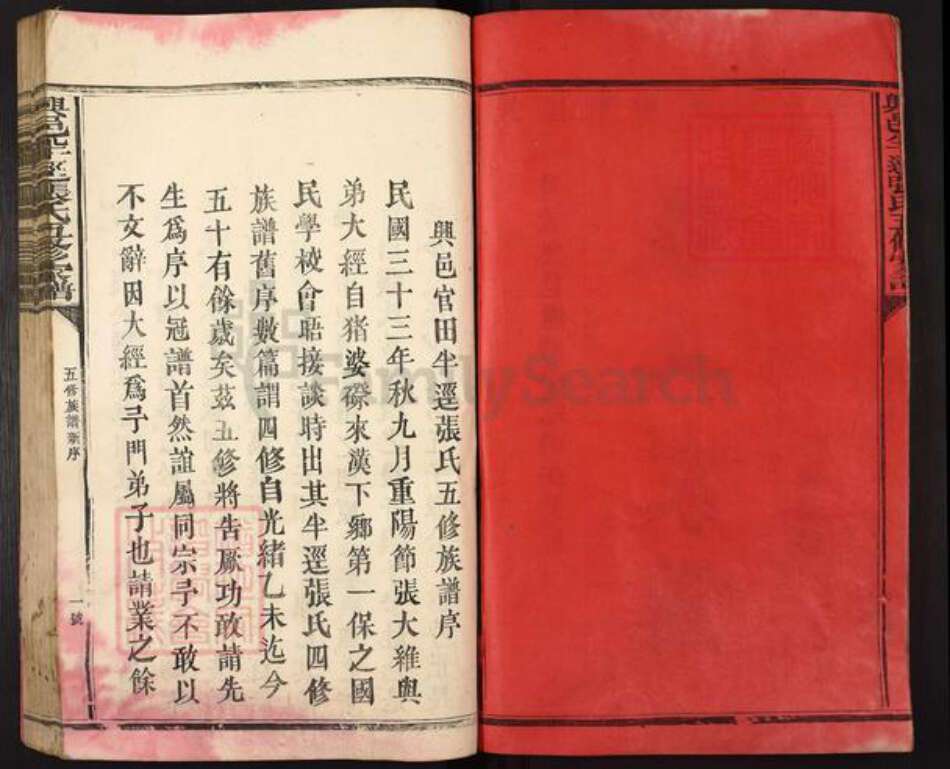 興邑官田半逕張氏五修族譜序
民國三十三年秋九月重陽節張大維與
弟大經自猪婆磜來漢下鄉第一保之國
民學校會晤接談時出其半逕張氏四修
族譜舊序數篇謂四修自光緒乙未迄今
五十有餘歲矣茲五修將告厥功敢請先
生爲序以冠譜首然誼屬同宗予不敢以
不文辭因大經爲予門弟子也請業之餘
五修族譜新序
一號
興邑半逕張氏五修宗譜
興邑半逕張氏五修宗譜
FamilySearch